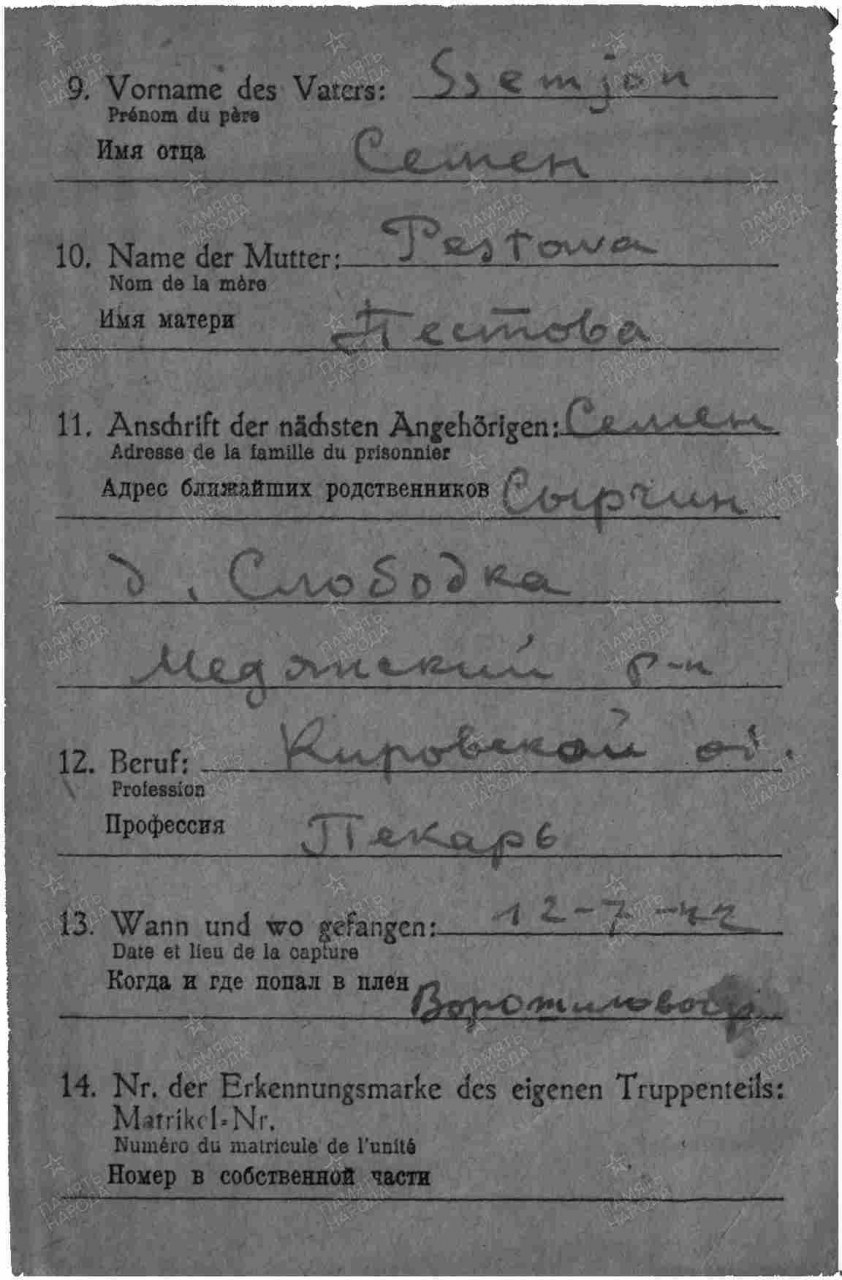 9. Vorname des Vaters: Ssemjon
Prénom du père
Имя отца Семен
10. Name der Mutter: Pestowa
Nom de la mère
Имя матери Пестова
11. Anschrift der nächsten Angehörigen: Семен
Adresse de la famille du prisonnier
Адрес ближайших родственников Сырчин
д. Слободка
Медянский р-н
Кировской об.
12. Beruf:
Profession
Профессия Пекарь
13. Wann und wo gefangen: 12-7-42
Date et lieu de la capture
Когда и где попал в плен
14. Nr. der Erkennungsmarke des eigenen Truppenteils:
Matrikel-Nr.
Numéro du matricule de l'unité
Номер в собственной части
ПАМЯТЬ
НАРОДА